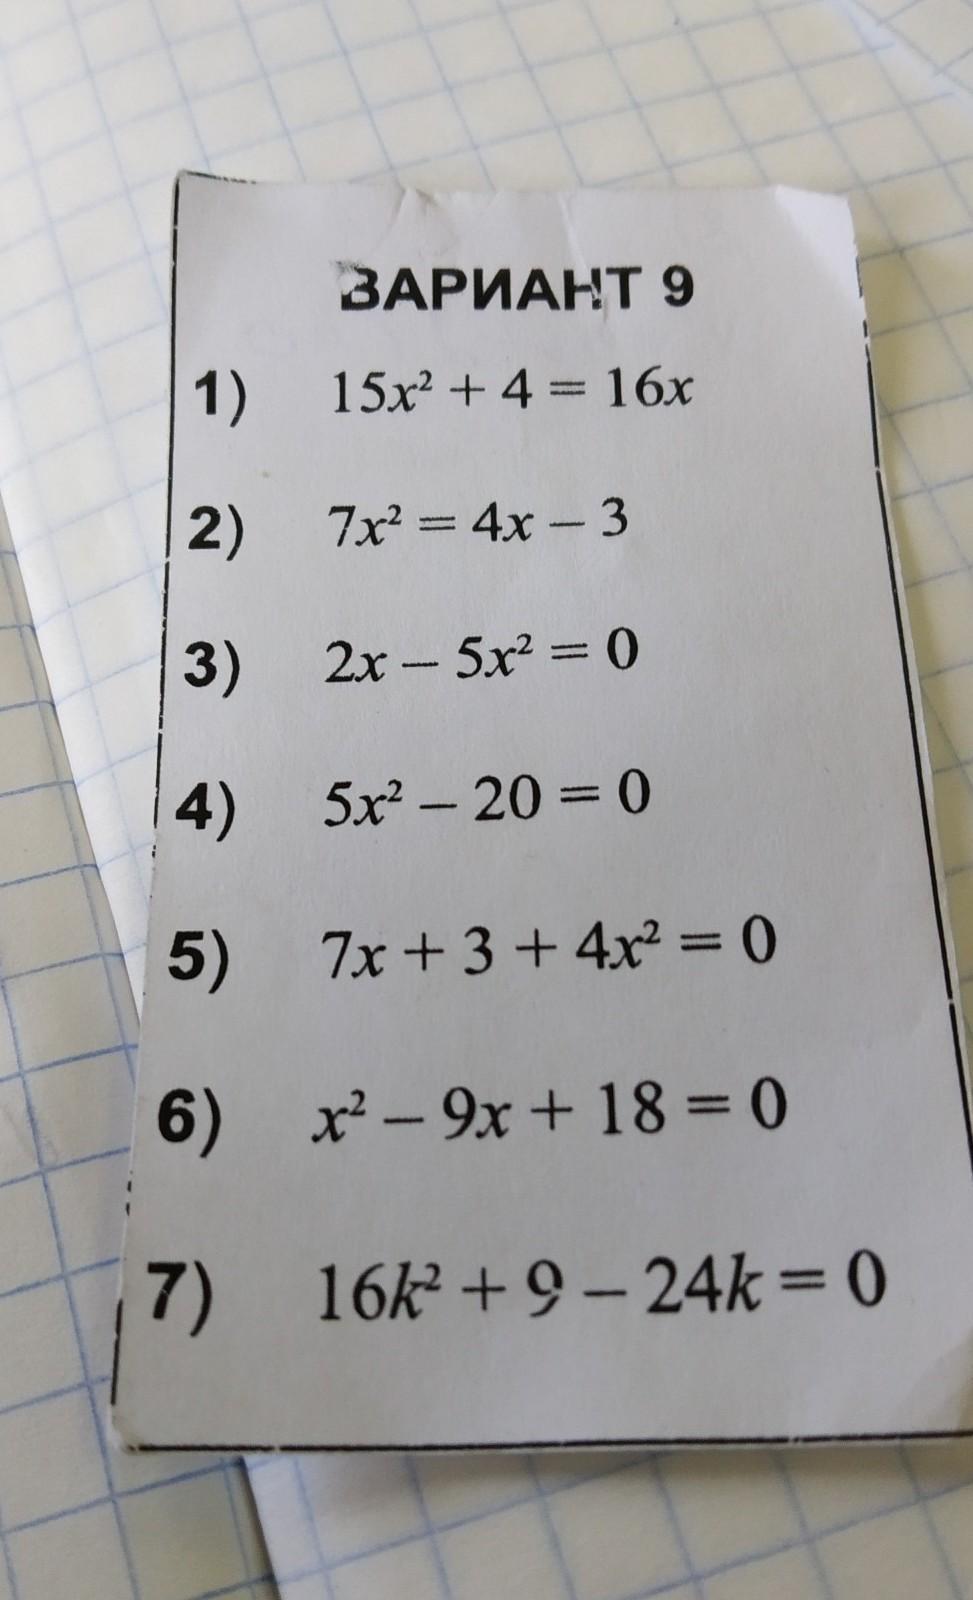 ВАРИАНТ 9
1) 15x² + 4 = 16x
2) 7x² = 4x – 3
3) 2x – 5x² = 0
4) 5x² – 20 = 0
5) 7x + 3 + 4x² = 0
6) x² – 9x + 18 = 0
7) 16k² + 9 – 24k = 0